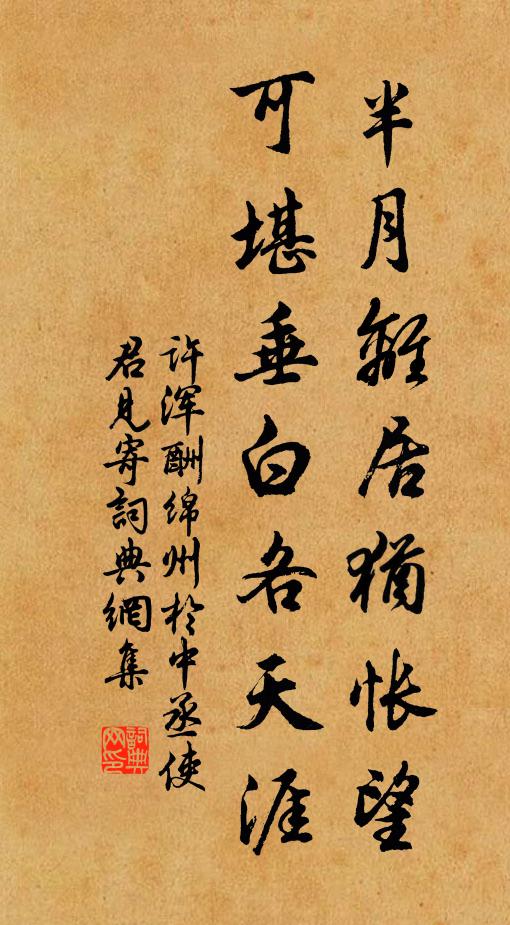 半月離居猶悵望
可堪垂白各天涯
许浑酬绵州於中丞使
君見寄詞典網集
詞典
网印